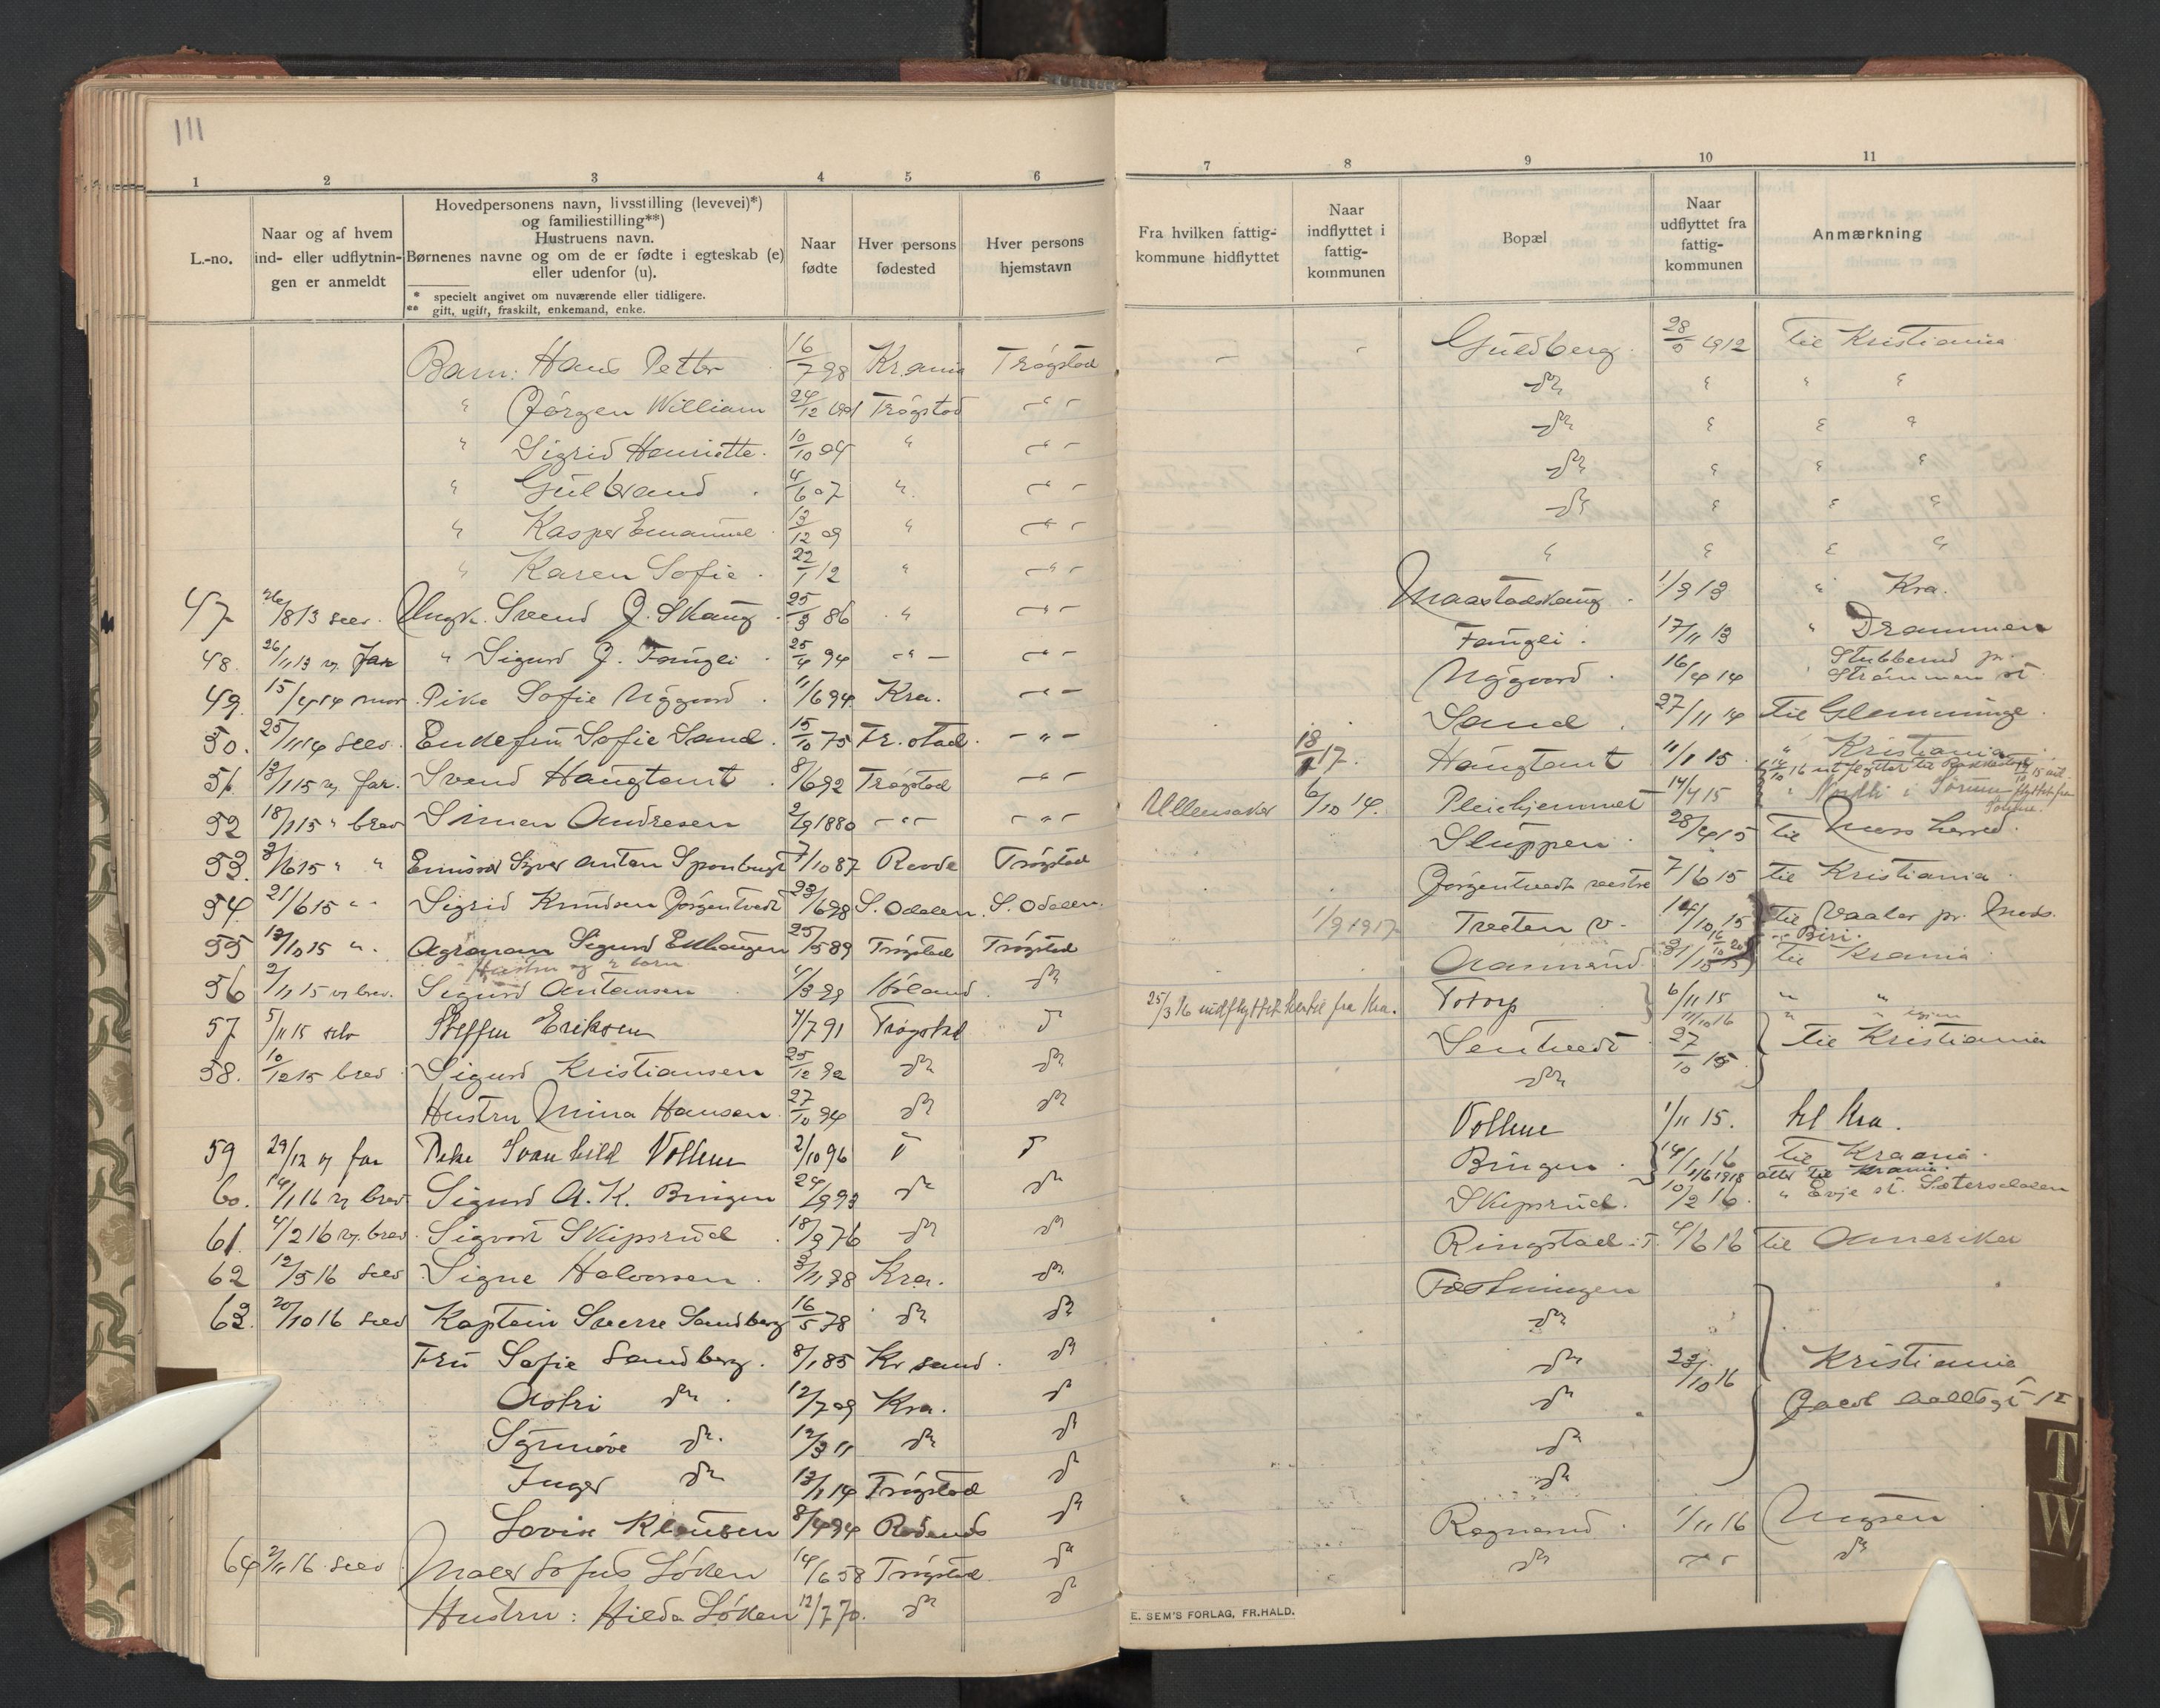 111
1 2 3 4 5 6
L.-no.
Naar og af hvem ind- eller udflytnin-gen er anmeldt
Hovedpersonens navn, livsstilling (levevei)*)
og familiestilling**)
Hustruens navn.
Børnenes navne og om de er fødte i egteskab (e)
eller udenfor (u).
* specielt angivet om nuværende eller tidligere.
** gift, ugift, fraskilt, enkemand, enke.
Naar fødte
Hver persons fødested
Hver persons hjemstavn
Barn: Hans Petter 16/7 98 Kr.ania Trøgstad
" Jørgen William 24/12 1901 Trøgstad -"-
" Sigrid Henriette. 10/10 04 " -"-
" Gulbrand 4/6 07 " -"-
" Kasper Emanuel 13/12 09 " -"-
" Karen Sofie. 22/1 12 " -"-
47 /8 13 selv. Ungk. Svend J. Skaug 25/3 86 " -"-
48. 26/11 13 v. far " Sigurd J. Faugli 25/4 94 -"- -"-
49. 15/4 14 mor Pike Sofie Nygaard 11/6 94 Kra. -"-
50. 25/11 14 selv. Enkefru Sofie Sand. 15/10 75 Fr.stad. -"-
51. 13/1 15 v. far. Svend Haugtomt 8/6 92 Trøgstad -"-
52 18/1 15 " brev Simen Andresen 2/9 1880 -"- -"-
53. 3/6 15 " " Emissær Syver Anton Sponbugt 7/10 87 Raade Trøgstad
54 21/6 15 " - Sigrid Knudsen Jørgentvedt 23/6 98 S. Odalen. S. Odalen.
55 13/10 15 ". Agronom Sigurd Enhaugen 25/5 89 Trøgstad Trøgstad
Hustru og 2 barn
56 2/11 15 v brev. Sigurd Antonsen 4/3 99 Høland do
57 5/11 15 selv Steffen Eriksen 4/7 91 Trøgstad do
58. 10/12 15 brev Sigurd Kristiansen 25/12 92 do do
Hustru Mina Hansen 27/10 94 do do
59 29/12 v far Pike Svanhild Vollene 2/10 96 do do
60. 14/1 16 v brev Sigurd A. K. Bingen 24/9 93 do do
61. 4/2 16 v. brev Sigvart Skipsrud 18/9 76 do do
62 12/5 16 selv Signe Halvorsen 3/11 98 Kra. do
63. 20/10 16 selv Kaptein Sverre Sandberg 16/5 78 do do
Fru Sofie Sandberg. 8/1 85 Kr sand. do
Astri do. 12/7 09 Kra. do
Synnøve do. 12/3 11 do do
Inger do 13/1 14 Trøgstad do
Lovise Klausen 8/4 94 Rødenes do
64 2/11 16 selv Maler Sofus Løken 14/6 58 Trøgstad do
Hustru: Hilda Løken 12/7 70. do do
7 8 9 10 11
Fra hvilken fattig-kommune hidflyttet
Naar indflyttet i fattig-kommunen
Bopæl
Naar udflyttet fra fattig-kommunen
Anmærkning
Guldberg 28/5 1912 Til Kristiania
do " " "
do " " "
do " " "
do " " "
" " " "
Maastadskaug 1/3 13 " Kra.
Faugli 17/11 13 " Drammen
Nygaard 16/4 14 " Stubberud pr. Strømmen st.
Sand 27/11 14 Til Glemminge
18/1 17. Haugtomt 11/1 15 " Kristiania
Ullensaker 6/10 14. Pleiehjemmet 14/4 15 " Nordli i Sørum
Sluppen 28/4 15 Til Moss herred.
Jørgentvedt vestre 7/6 15 til Kristiania
1/9 1917 Tveten v. 14/10 15 til Vaaler pr. Moss.
" Biri.
31/10 15 til Krania
25/3 16 indflyttet hertil fra Kra. Totorp 6/11 15 " "
11/10 16 " " igjen
Sentvedt 27/10 15 Til Kristiania
do
Vollene 1/11 15. til Kra.
Bingen 14/1 16 Til Krania.
1/6 1918 atter til Krania.
Skipsrud. 10/2 16. " Evje st. Sætersdalen
Ringstad. T. 4/6 16 til Amerika
Festningen
do
do 23/10 16 Kristiania
do
do
do
Ragnerud 1/11 16 Mysen
do -"- do
E. SEM'S FORLAG, FR.HALD.
T
W